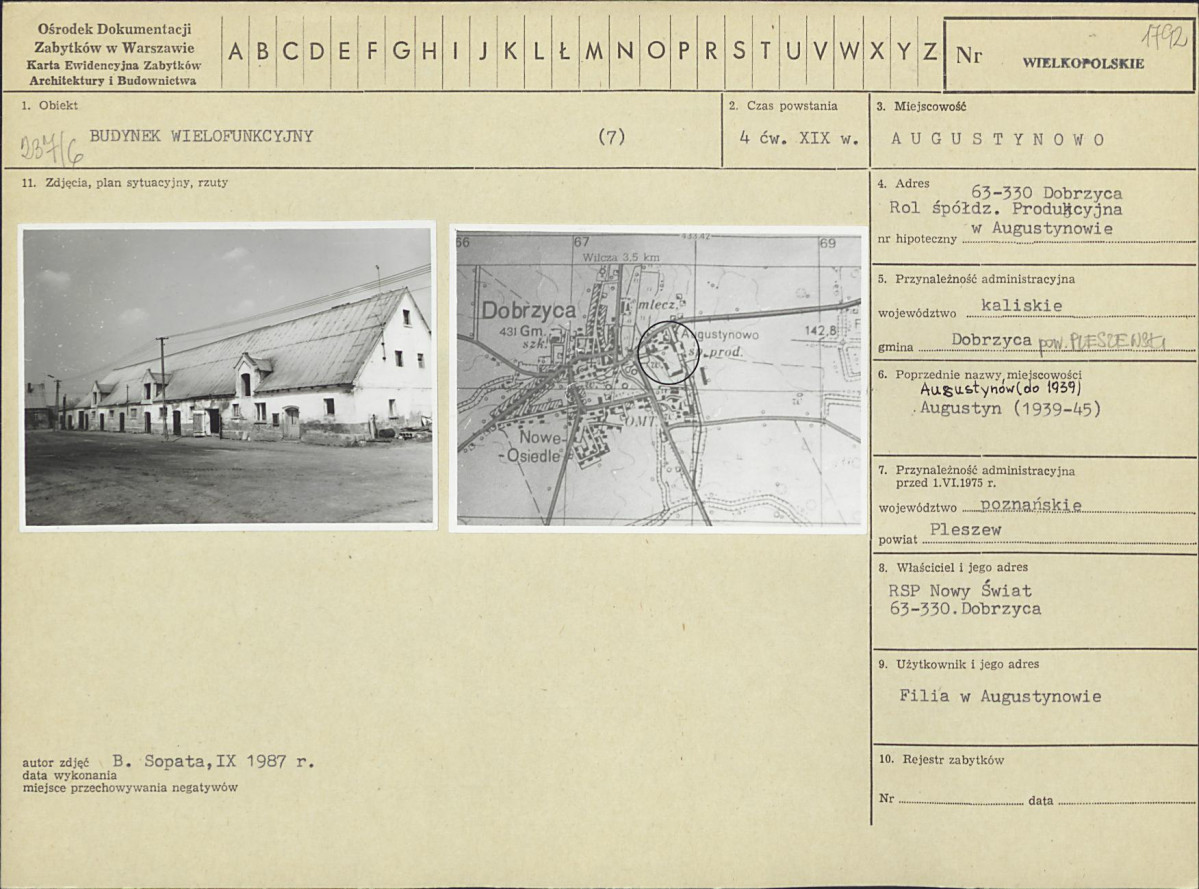 Ośrodek Dokumentacji
Zabytków w Warszawie
Karta Ewidencyjna Zabytków
Architektury i Budownictwa
A B C D E F G H I J K L Ł M N O P R S T U V W X Y Z
Nr
1792
WIELKOPOLSKIE
1. Obiekt
237/6
BUDYNEK WIELOFUNKCYJNY (7)
2. Czas powstania
4 ćw. XIX w.
3. Miejscowość
AUGUSTYNOWO
11. Zdjęcia, plan sytuacyjny, rzuty
66 67 69
Wilcza 3,5 km
Dobrzyca
mlecz.
431 Gm.
szk.
Augustynowo
sp. prod.
142,8
OMT
Nowe-
-Osiedle
4. Adres
63-330 Dobrzyca
Rol spółdz. Produkcyjna
w Augustynowie
nr hipoteczny
5. Przynależność administracyjna
województwo kaliskie
gmina Dobrzyca pow. PLESZEWSKI
6. Poprzednie nazwy miejscowości
Augustynów (do 1939)
Augustyn (1939-45)
7. Przynależność administracyjna
przed 1.VI.1975 r.
województwo poznańskie
powiat Pleszew
8. Właściciel i jego adres
RSP Nowy Świat
63-330.Dobrzyca
9. Użytkownik i jego adres
Filia w Augustynowie
10. Rejestr zabytków
Nr data
autor zdjęć B. Sopata,IX 1987 r.
data wykonania
miejsce przechowywania negatywów